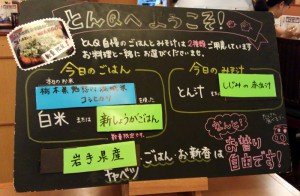 とんQへ ようこそ！
とんQ自慢のごはんとみそ汁は2種類ご用意しています
お料理と一緒にお選びくださいませ。
今日のごはん
今日のお米
コシヒカリ
を使った
白米 または 新しょうがごはん
数量限定です。
今日のみそ汁
とん汁 または しじみの赤出汁
岩手県産
キャベツ
ごはん・お新香は
なんと！
お替り
自由です！